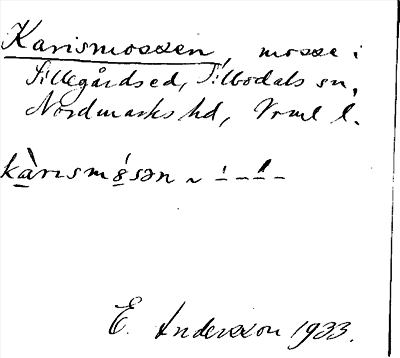 Karismossen, mosse i
Sillegårdsed, Silbodals sn,
Nordmarks hd, Vrml l.
kàrısmó̱sən ~ -́ – -́ –
E. Andersson 1933.